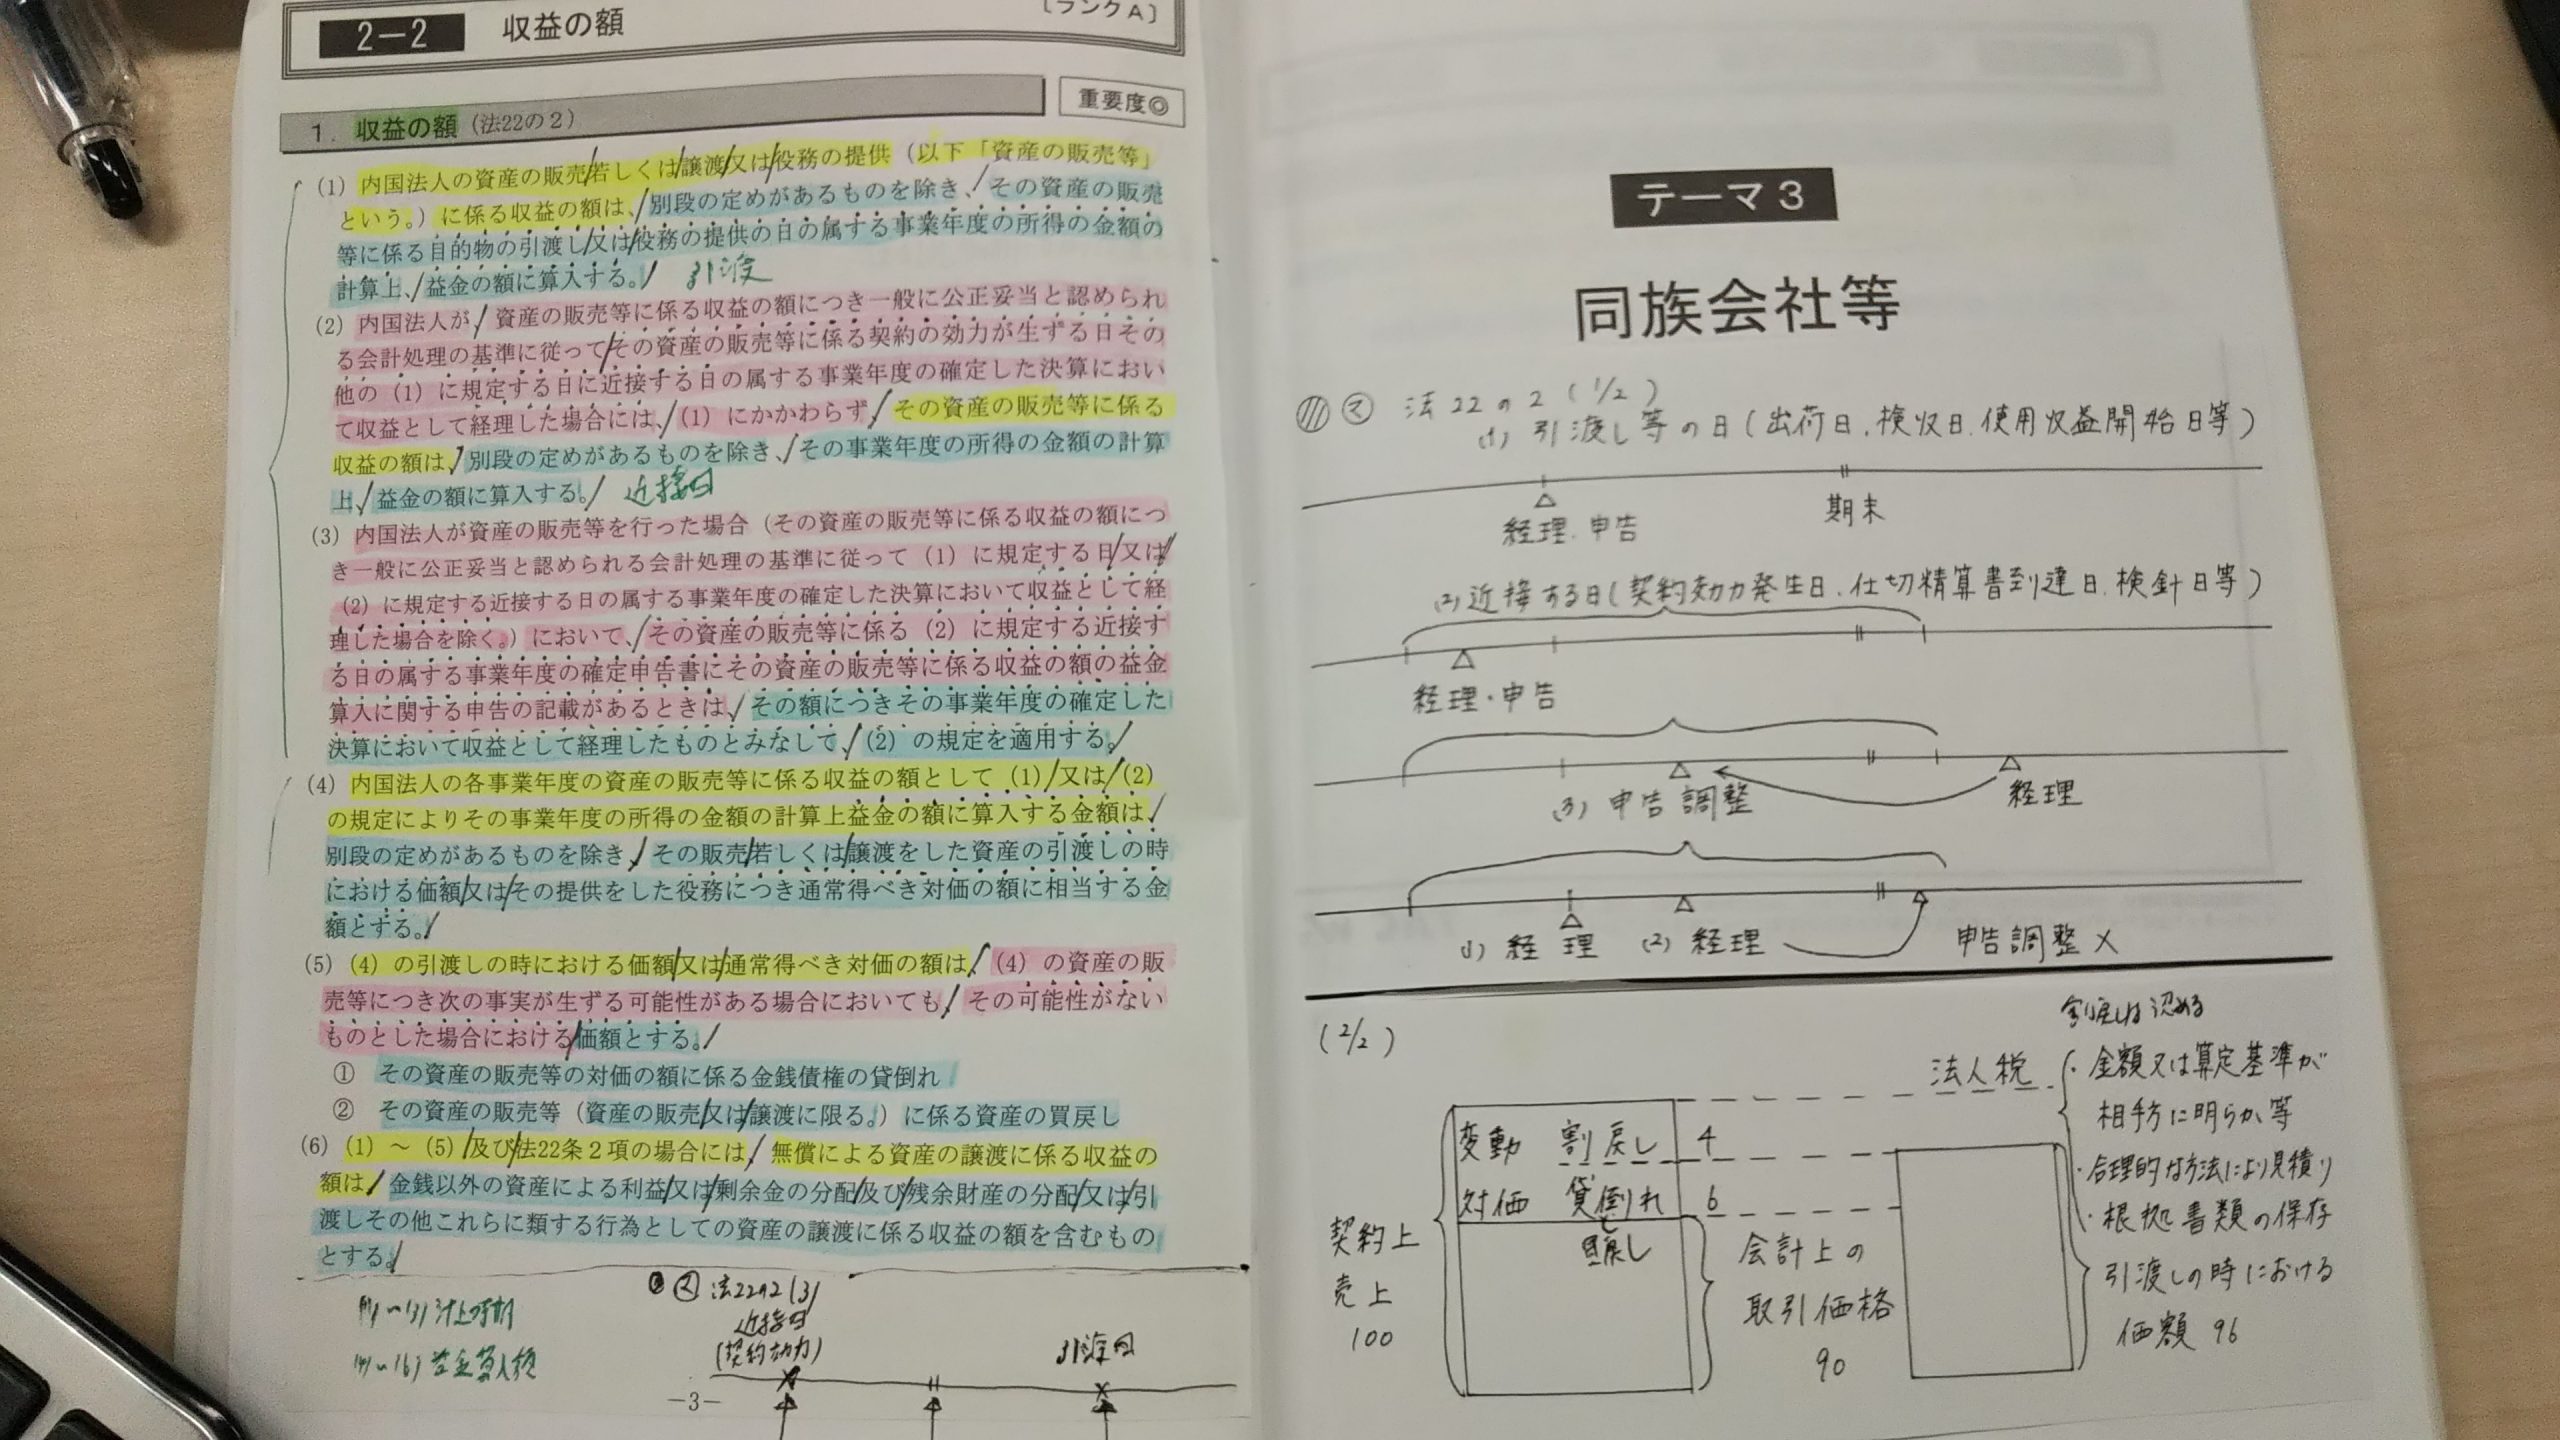 2−2 収益の額
〔ランクA〕
1. 収益の額（法22の2）
重要度◎
(1) 内国法人の資産の販売若しくは譲渡又は役務の提供（以下「資産の販売等」
という。）に係る収益の額は、別段の定めがあるものを除き、その資産の販売
等に係る目的物の引渡し又は役務の提供の日の属する事業年度の所得の金額の
計算上、益金の額に算入する。 引渡
(2) 内国法人が、資産の販売等に係る収益の額につき一般に公正妥当と認められ
る会計処理の基準に従ってその資産の販売等に係る契約の効力が生ずる日その
他の（1）に規定する日に近接する日の属する事業年度の確定した決算におい
て収益として経理した場合には、（1）にかかわらず、その資産の販売等に係る
収益の額は、別段の定めがあるものを除き、その事業年度の所得の金額の計算
上、益金の額に算入する。 近接日
(3) 内国法人が資産の販売等を行った場合（その資産の販売等に係る収益の額につ
き一般に公正妥当と認められる会計処理の基準に従って（1）に規定する日又は
（2）に規定する近接する日の属する事業年度の確定した決算において収益として経
理した場合を除く。）において、その資産の販売等に係る（2）に規定する近接す
る日の属する事業年度の確定申告書にその資産の販売等に係る収益の額の益金
算入に関する申告の記載があるときは、その額につきその事業年度の確定した
決算において収益として経理したものとみなして、（2）の規定を適用する。
(4) 内国法人の各事業年度の資産の販売等に係る収益の額として（1）又は（2）
の規定によりその事業年度の所得の金額の計算上益金の額に算入する金額は、
別段の定めがあるものを除き、その販売若しくは譲渡をした資産の引渡しの時
における価額又はその提供をした役務につき通常得べき対価の額に相当する金
額とする。
(5) （4）の引渡しの時における価額又は通常得べき対価の額は、（4）の資産の販
売等につき次の事実が生ずる可能性がある場合においても、その可能性がない
ものとした場合における価額とする。
① その資産の販売等の対価の額に係る金銭債権の貸倒れ
② その資産の販売等（資産の販売又は譲渡に限る。）に係る資産の買戻し
(6) （1）～（5）及び法22条2項の場合には、無償による資産の譲渡に係る収益の
額は、金銭以外の資産による利益又は剰余金の分配及び残余財産の分配又は引
渡しその他これらに類する行為としての資産の譲渡に係る収益の額を含むもの
とする。
(1)～(3) 計上時期
(4)～(6) 益金算入額
法22の2(3)
近接日
(契約効力)
引渡日
−3−
テーマ3
同族会社等
法22の2 (1/2)
(1) 引渡し等の日(出荷日、検収日、使用収益開始日等)
経理・申告
期末
(2) 近接する日(契約効力発生日、仕切精算書到達日、検針日等)
経理・申告
(3) 申告調整
経理
(1) 経理
(2) 経理
申告調整×
(2/2)
割戻しは認める
法人税
・金額又は算定基準が
相手方に明らか等
・合理的な方法により見積り
・根拠書類の保存
変動 割戻し 4
対価 貸倒れ 6
買戻し
契約上
売上
100
会計上の
取引価格
90
引渡しの時における
価額 96